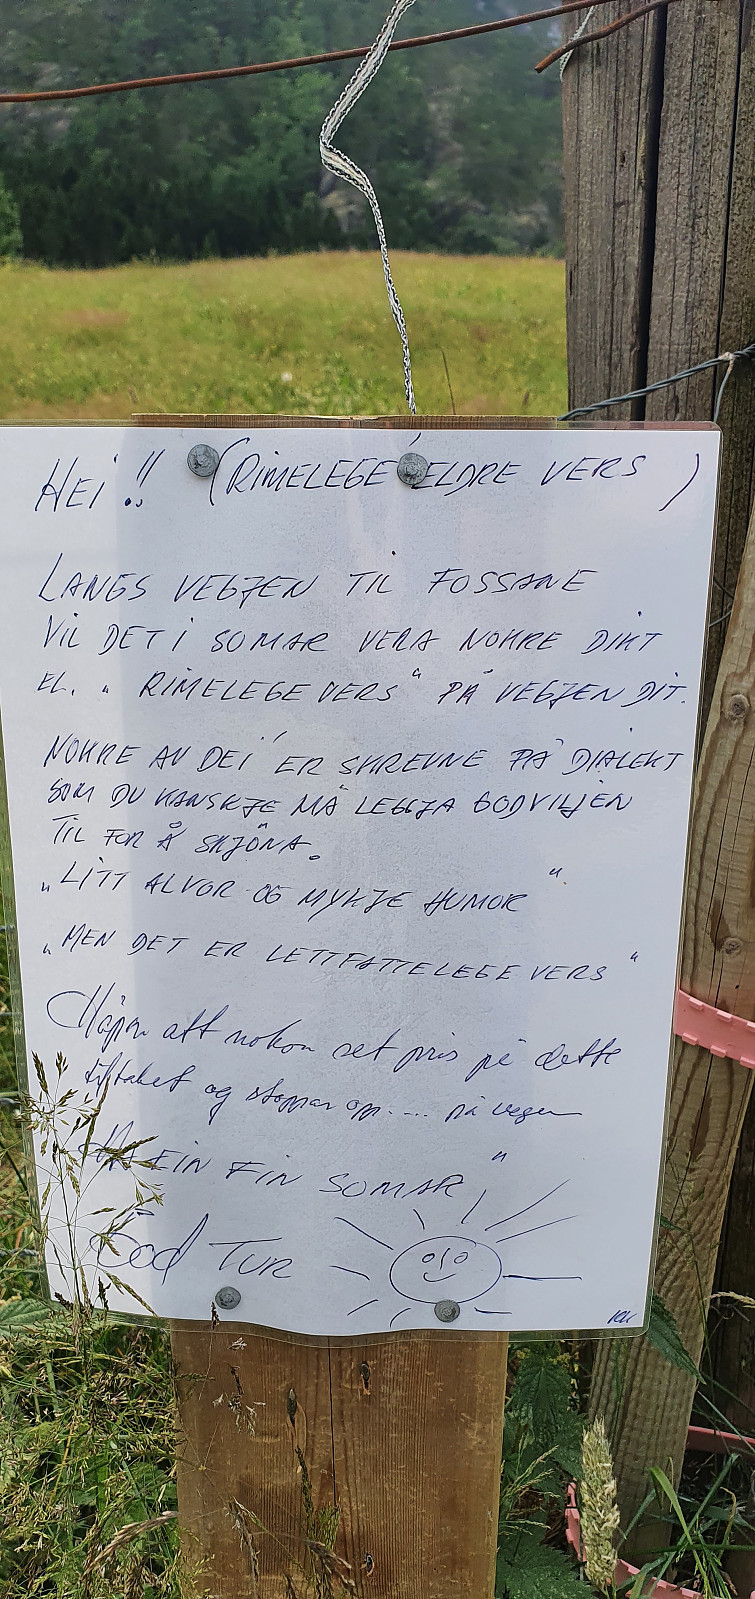 HEI!! (RIMELEGE ELDRE VERS)
LANGS VEGJEN TIL FOSSANE
VIL DET I SOMAR VERA NOKRE DIKT
EL. "RIMELEGE VERS" PÅ VEGJEN DIT.
NOKRE AV DEI ER SKREVNE PÅ DIALEKT
SOM DU KANSKJE MÅ LEGGJA GODVILJEN
TIL FOR Å SKJÖNA.
"LITT ALVOR OG MYKJE HUMOR"
"MEN DET ER LETTFATTELEGE VERS"
Håper att nokon set pris på dette
tiltaket og stoppar opp.... på vegen
HA EIN FIN SOMAR"
God TUR